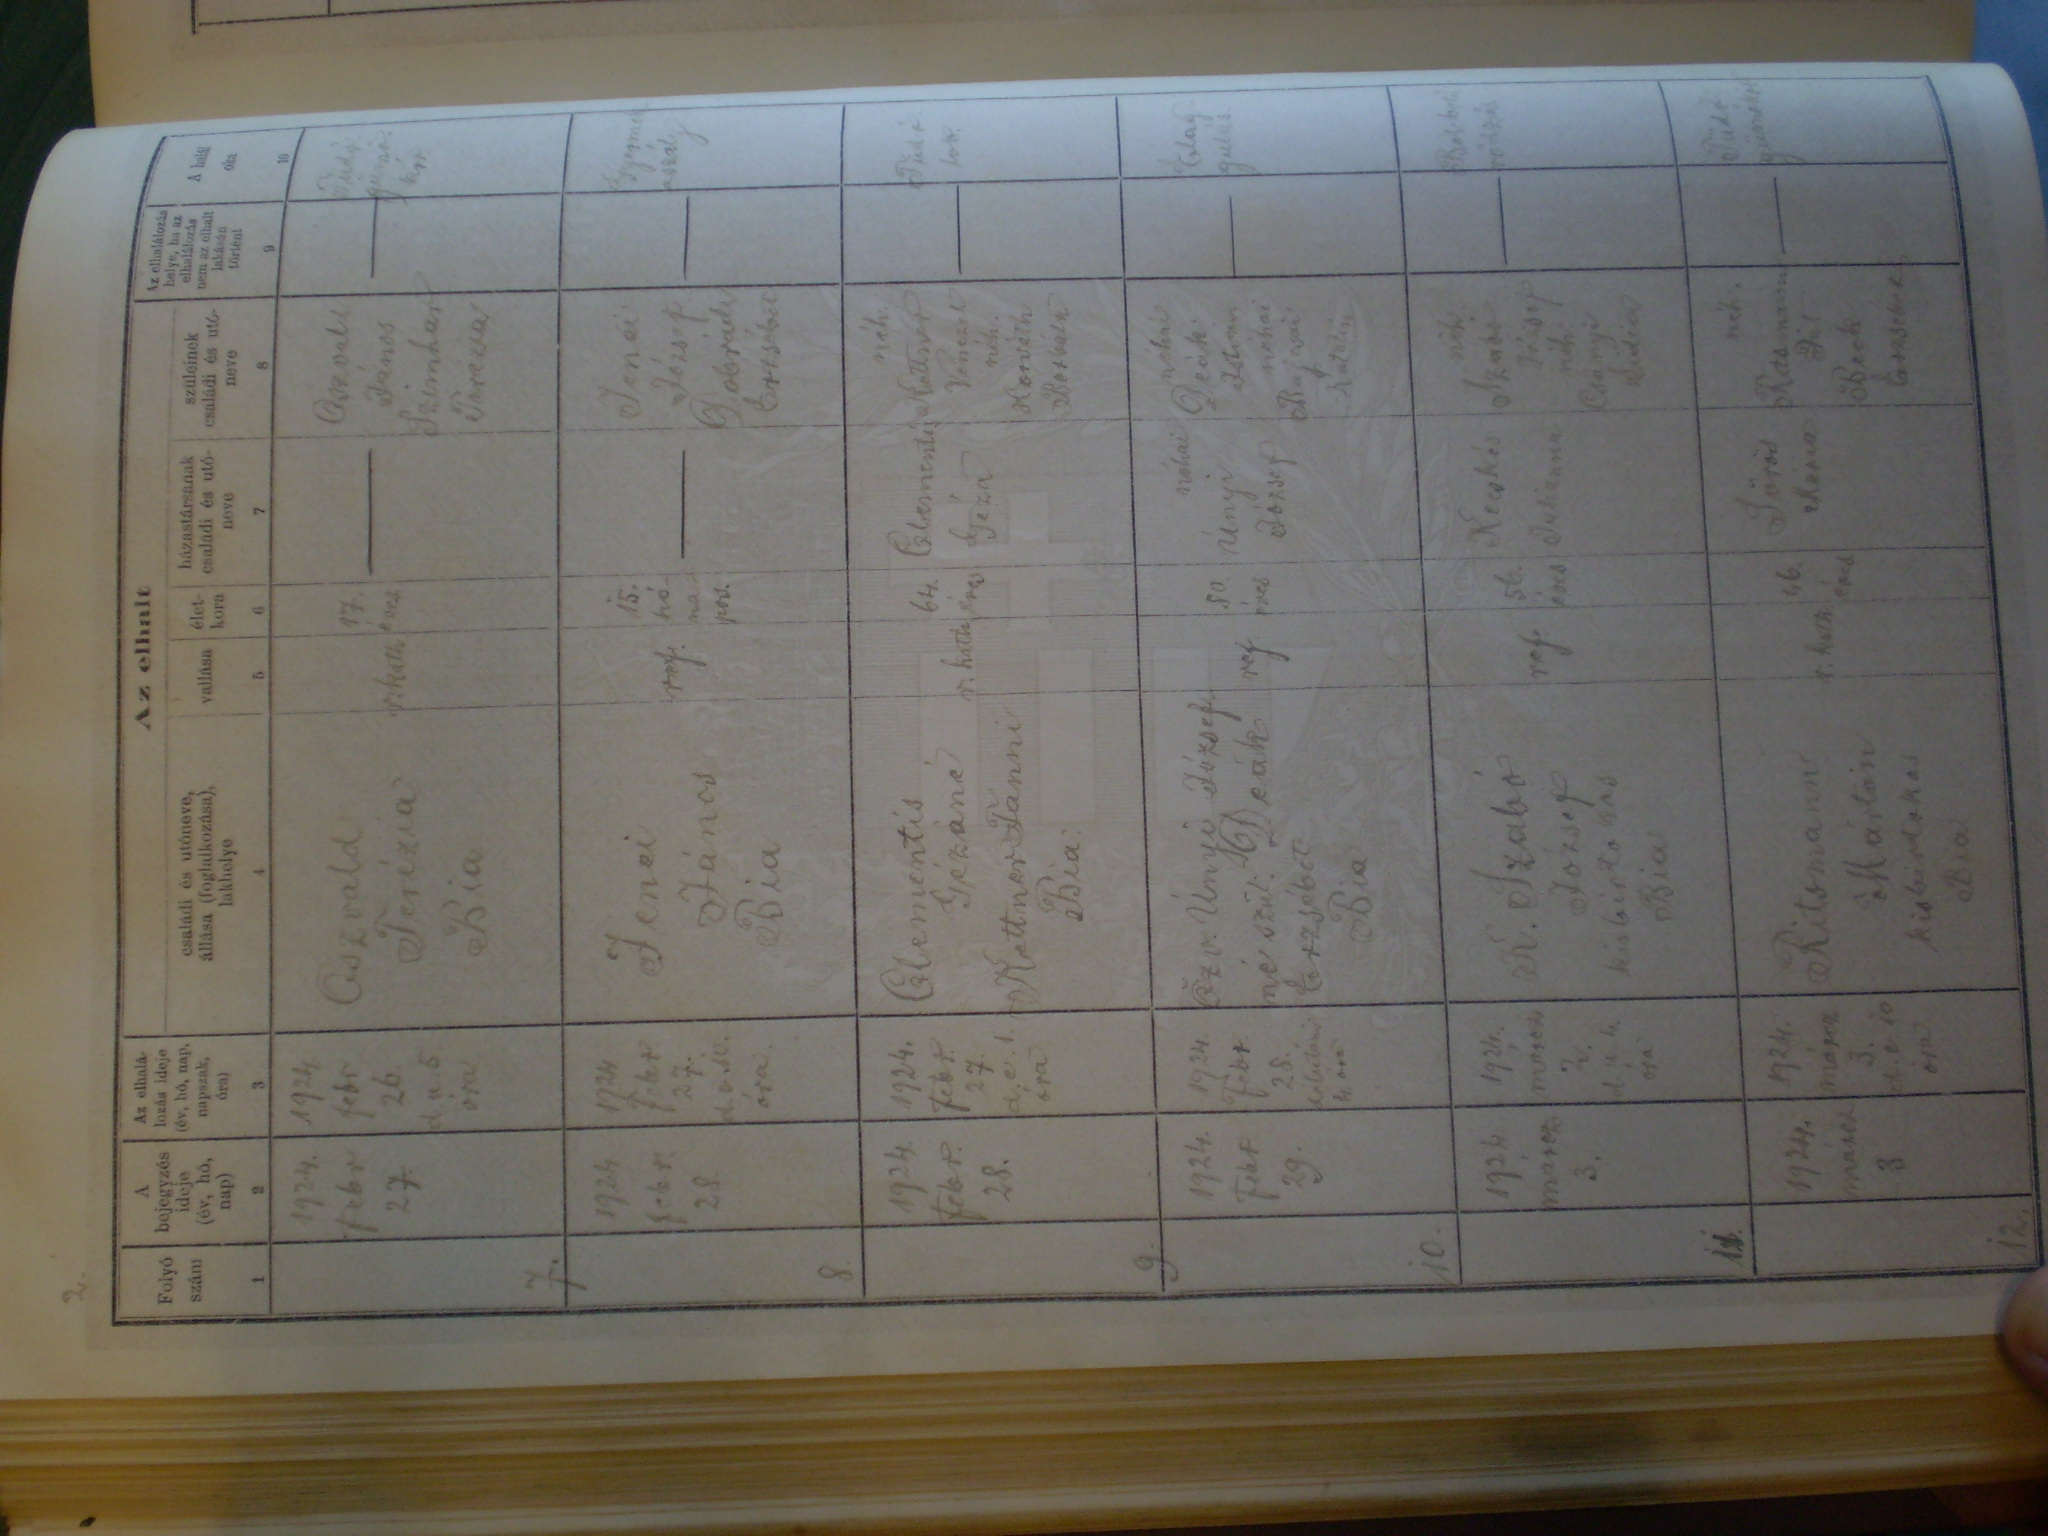 2.
Az elhalt
Folyó
szám
A
bejegyzés
ideje
(év, hó,
nap)
Az elhalá-
lozás ideje
(év, hó, nap,
napszak,
óra)
családi és utóneve,
állása (foglalkozása),
lakhelye
vallása
élet-
kora
házastársának
családi és utó-
neve
szüleinek
családi és utó-
neve
Az elhalálozás
helye, ha az
elhalálozás
nem az elhalt
lakásán
történt
A halál
oka
1 2 3 4 5 6 7 8 9 10
7.
1924.
febr
27.
1924
febr
26.
d.u. 5.
óra
Oszvald
Terézia
Bia
rkath
17.
éves
Oszvald
János
Szimhar
Terezia
Tüdő
gümő
kór
8.
1924
febr.
28.
1924
febr.
27.
d.e. 10.
óra
Jenei
János
Bia
ref.
15.
hó-
na-
pos.
Jenei
József
Dobrádi
Erzsébet
9.
1924.
febr.
28.
1924.
febr.
27
d.e. 1.
óra
Clementis
Gézáné
Kettner Fanni
Bia
r. kath
64.
éves
Clementis
Géza
néh.
Kettner
Venczel
néh.
Horváth
Borbála
10.
1924.
Febr
29.
1924.
Febr.
28.
délutáni
4. óra
Özv. Únyi József
né szül: H Deák
Erzsébet
Bia
ref.
80
éves
néhai
Únyi
József
néhai
Deák
István
néhai
Bajcsai
Katalin
11.
1924
márcz
3.
1924.
márcz
2.
d.u 4.
óra
K. Szabó
József
kisbirtokos
Bia
ref.
56.
éves
Kecskés
Julianna
néh.
Szabó
József
néh
Csányi
Lidia
12.
1924.
márcz
3
1924.
márcz
3.
d.e. 10
óra
Ritsmann
Márton
kisbirtokos
Bia
r. kath
46.
éves
Görös
Mária
néh.
Ritsmann
Pál
Beck
Erzsébet
Tüdő
gümőkór